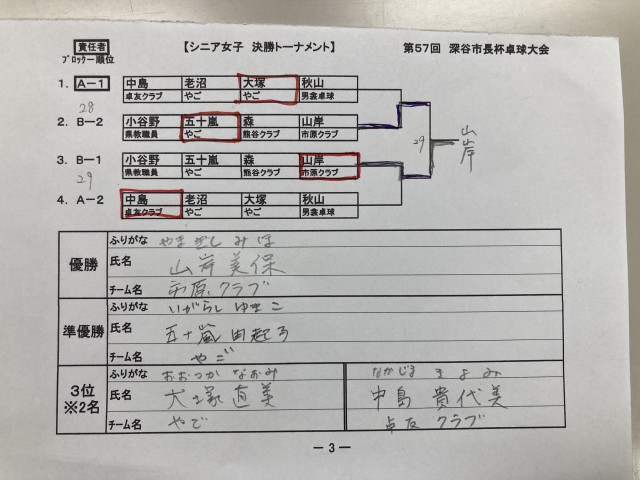 責任者 【シニア女子 決勝トーナメント】 第57回 深谷市長杯卓球大会
ブロックー順位
1. A－1 中島 老沼 大塚 秋山
卓友クラブ やご やご 男衾卓球
28
2. B－2 小谷野 五十嵐 森 山岸
県教職員 やご 熊谷クラブ 市原クラブ
29 山岸
3. B－1 小谷野 五十嵐 森 山岸
県教職員 やご 熊谷クラブ 市原クラブ
29
4. A－2 中島 老沼 大塚 秋山
卓友クラブ やご やご 男衾卓球
優勝
ふりがな やまぎし みほ
氏名 山岸美保
チーム名 市原クラブ
準優勝
ふりがな いがらし ゆきこ
氏名 五十嵐由起子
チーム名 やご
3位
※2名
ふりがな おおつか なおみ なかじま きよみ
氏名 大塚直美 中島 貴代美
チーム名 やご 卓友 クラブ
－3－